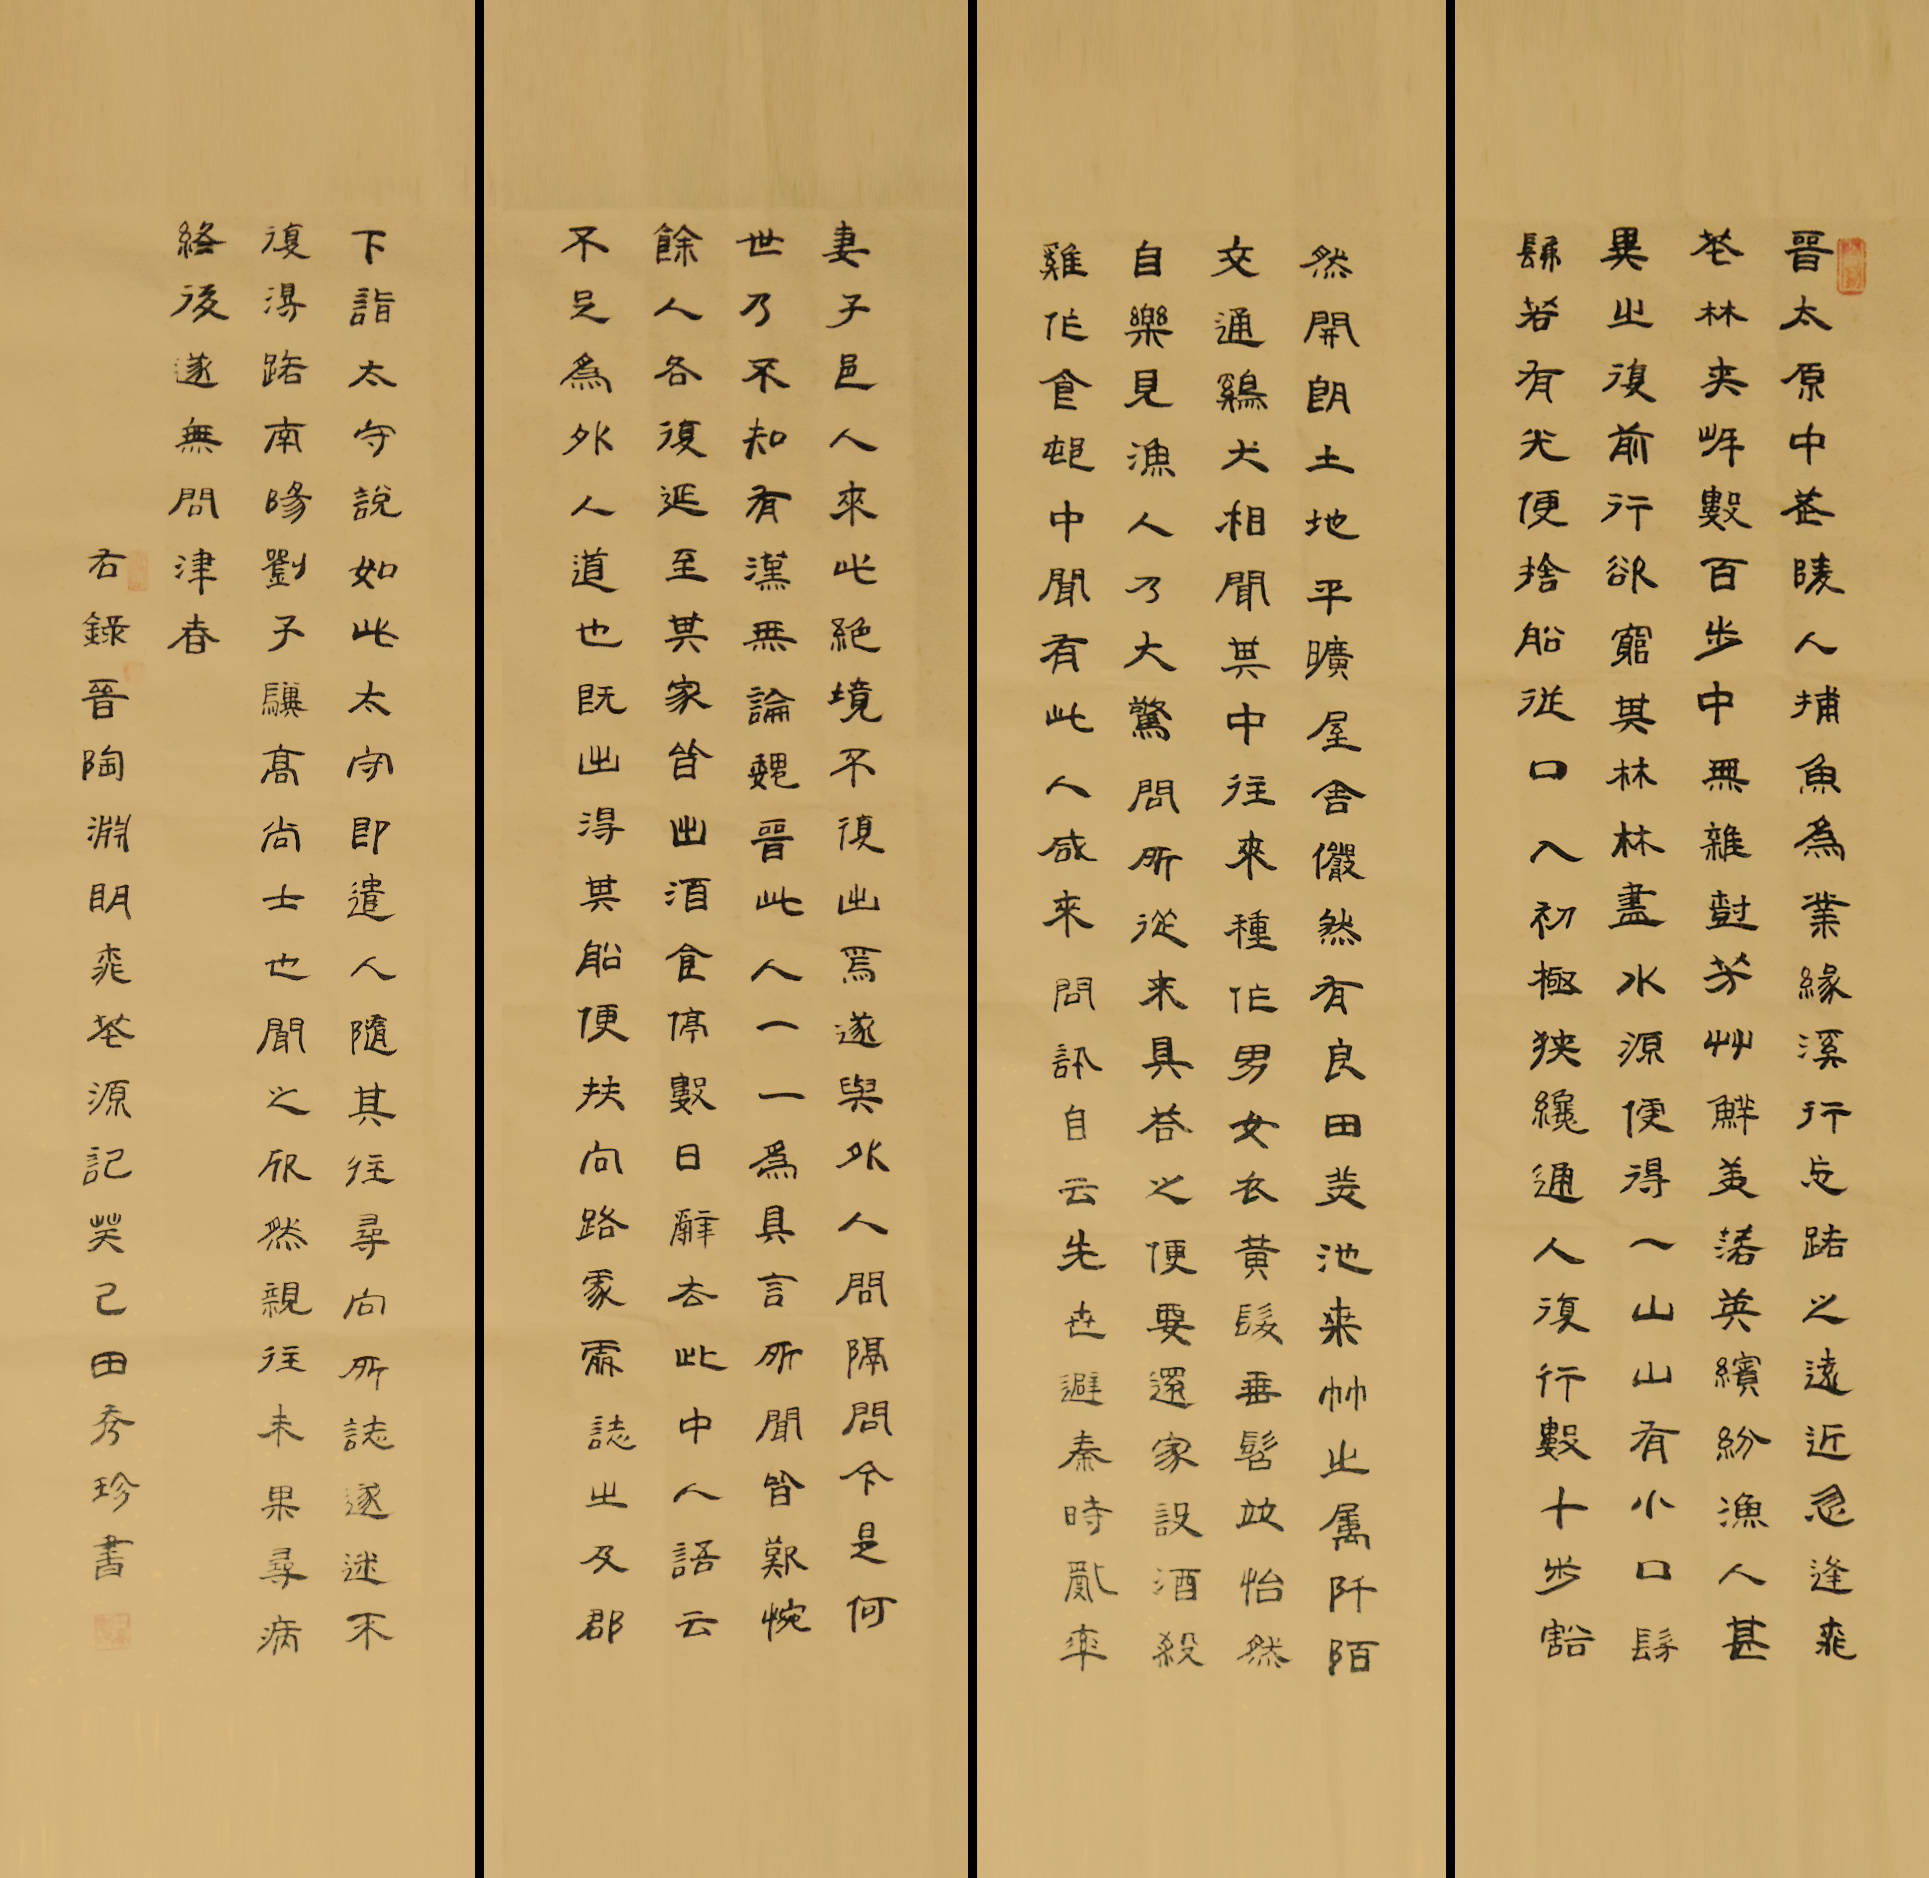 晉太原中武陵人捕魚為業緣溪行忘路之遠近忽逢桃
花林夾岸數百步中無雜樹芳艸鮮美落英繽紛漁人甚
異之復前行欲窮其林林盡水源便得一山山有小口髣
髴若有光便捨船從口入初極狹纔通人復行數十步豁
然開朗土地平曠屋舍儼然有良田美池桒竹之属阡陌
交通鷄犬相聞其中往來種作男女衣黃髮垂髫並怡然
自樂見漁人乃大驚問所從来具荅之便要還家設酒殺
雞作食邨中聞有此人咸来問訊自云先世避秦時亂率
妻子邑人來此絕境不復出焉遂與外人間隔問今是何
世乃不知有漢無論魏晉此人一一為具言所聞皆歎惋
餘人各復延至其家皆出酒食停數日辭去此中人語云
不足為外人道也既出得其船便扶向路處處誌之及郡
下詣太守說如此太守即遣人隨其往尋向所誌遂迷不
復得路南陽劉子驥髙尚士也聞之欣然親往未果尋病
終後遂無問津春
右錄晉陶淵明桃花源記癸己田秀珍書